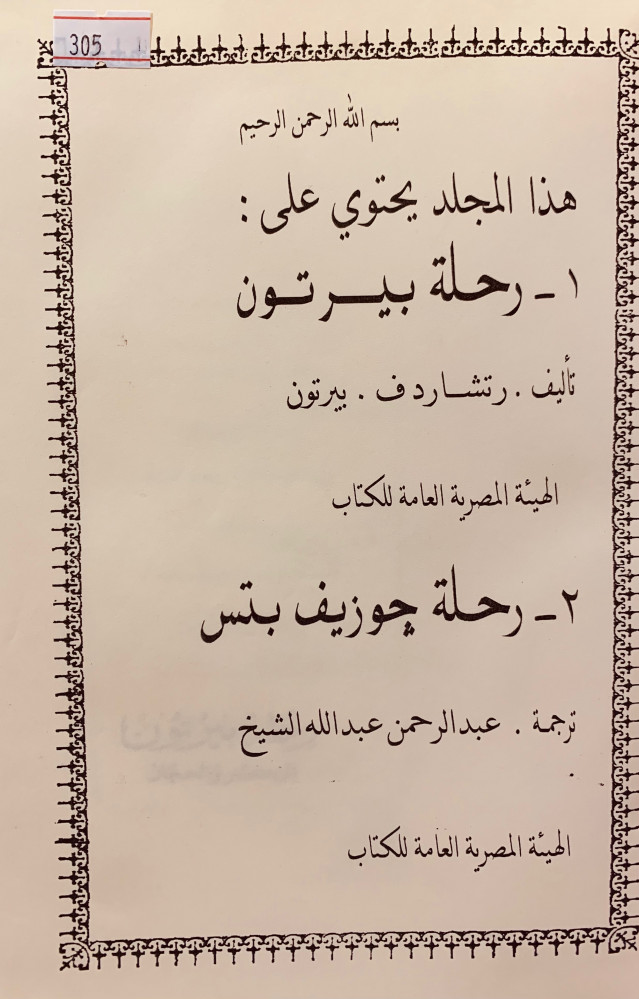 305
بسم الله الرحمن الرحيم
هذا المجلد يحتوي على :
١ - رحلة بيـرتـون
تأليف . رتشـارد ف . بيرتون
الهيئة المصرية العامة للكتاب
٢ - رحلة چوزيف بتس
ترجمة . عبدالرحمن عبدالله الشيخ
الهيئة المصرية العامة للكتاب